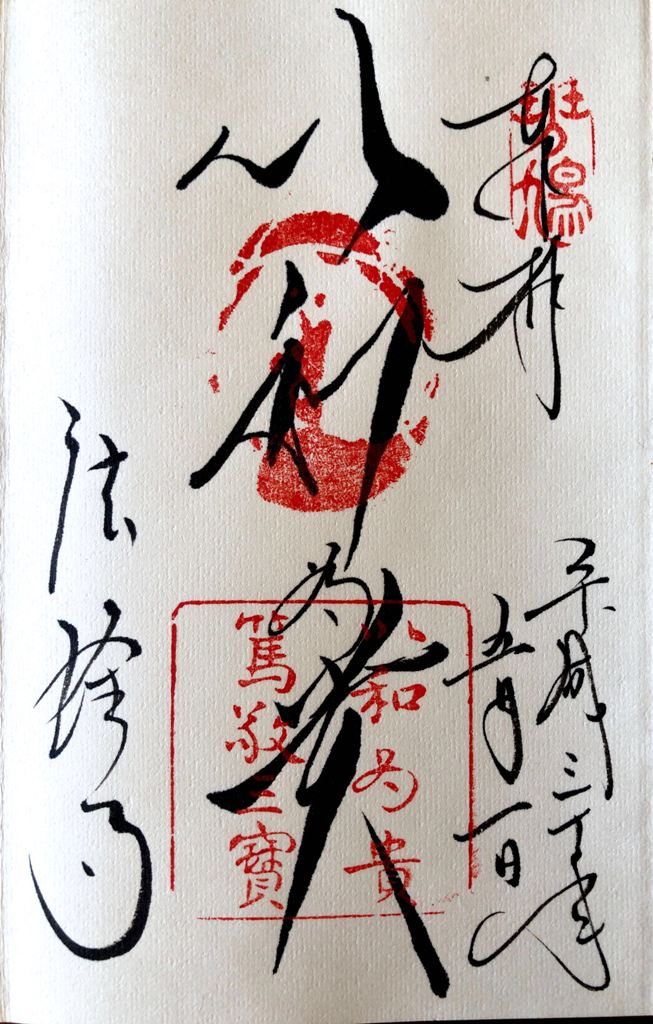 奉拝
平成三十年
五月一日
以和為貴
法隆寺
斑鳩
以和為貴
篤敬三寳